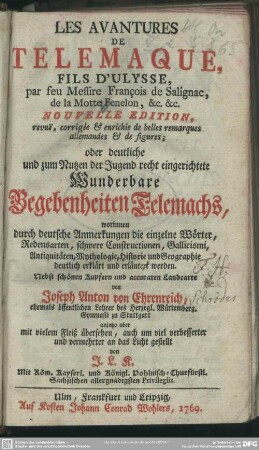 LES AVANTURES
DE
TELEMAQUE,
FILS D'ULYSSE,
par feu Messire François de Salignac,
de la Motte Fenelon, &c. &c.
NOUVELLE EDITION,
revuë, corrigée & enrichie de belles remarques
allemandes & de figures;
oder deutliche
und zum Nutzen der Jugend recht eingerichtete
Wunderbare
Begebenheiten Telemachs,
worinnen
durch deutsche Anmerkungen die einzelne Wörter,
Redensarten, schwere Constructionen, Gallicismi,
Antiquitäten, Mythologie, Historie und Geographie
deutlich erklärt und erläutert werden.
Nebst schönen Kupfern und accuraten Landcarte
von
Joseph Anton von Ehrenreich,
ehemals öffentlichen Lehrer bei Herzogl. Würtemberg.
Gymnasio zu Stuttgart
anjezo aber
mit vielem Fleiß übersehen, auch um viel verbesserter
und vermehrter an das Licht gestellt
von
J. L. K.
Mit Röm. Kayserl. und Königl. Pohlnisch-Churfürstl.
Sächsischen allergnädigsten Privilegiis.
Ulm, Frankfurt und Leipzig,
Auf Kosten Johann Conrad Wohlers, 1769.